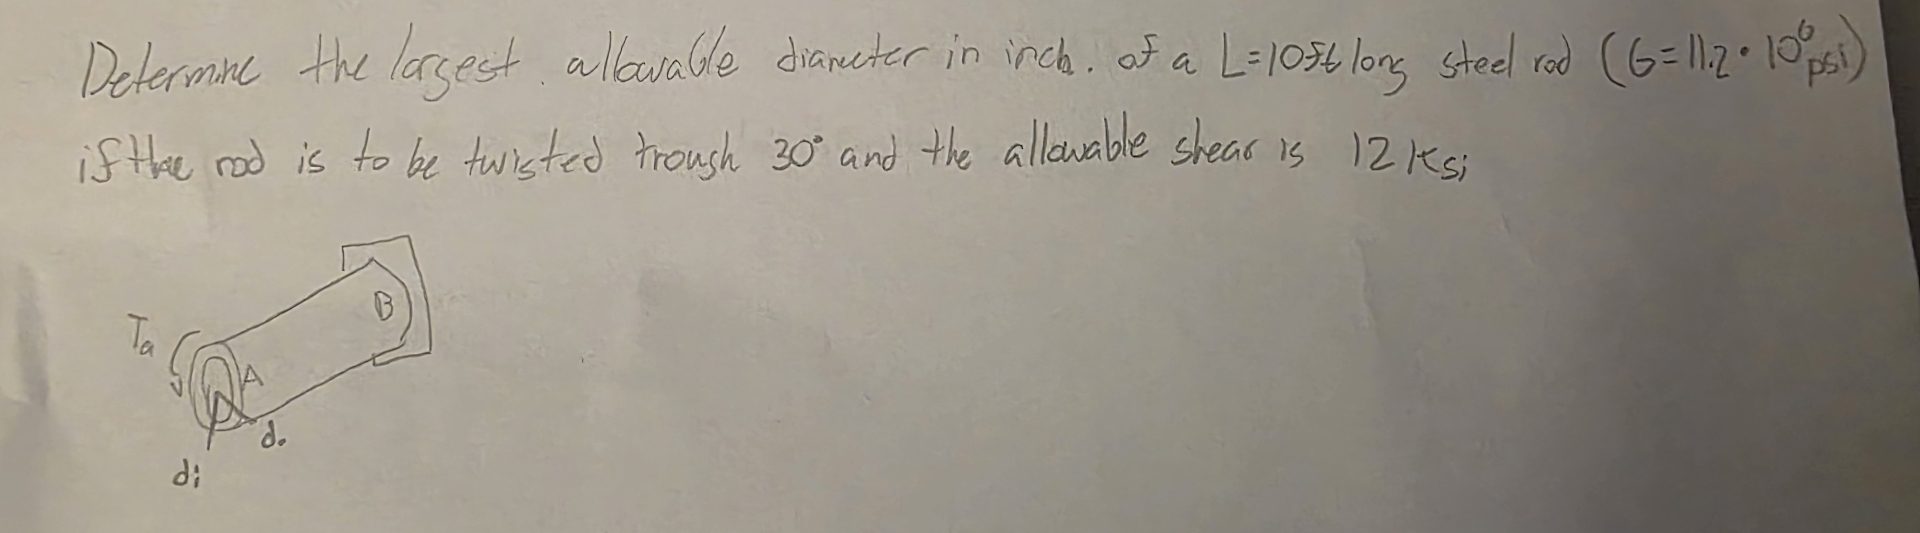 Determine the largest allowable diameter in inch. of a L=10ft long steel rod (G=11.2·10⁶ psi)
if the rod is to be twisted trough 30° and the allowable shear is 12 ksi
B
Ta
A
do
di